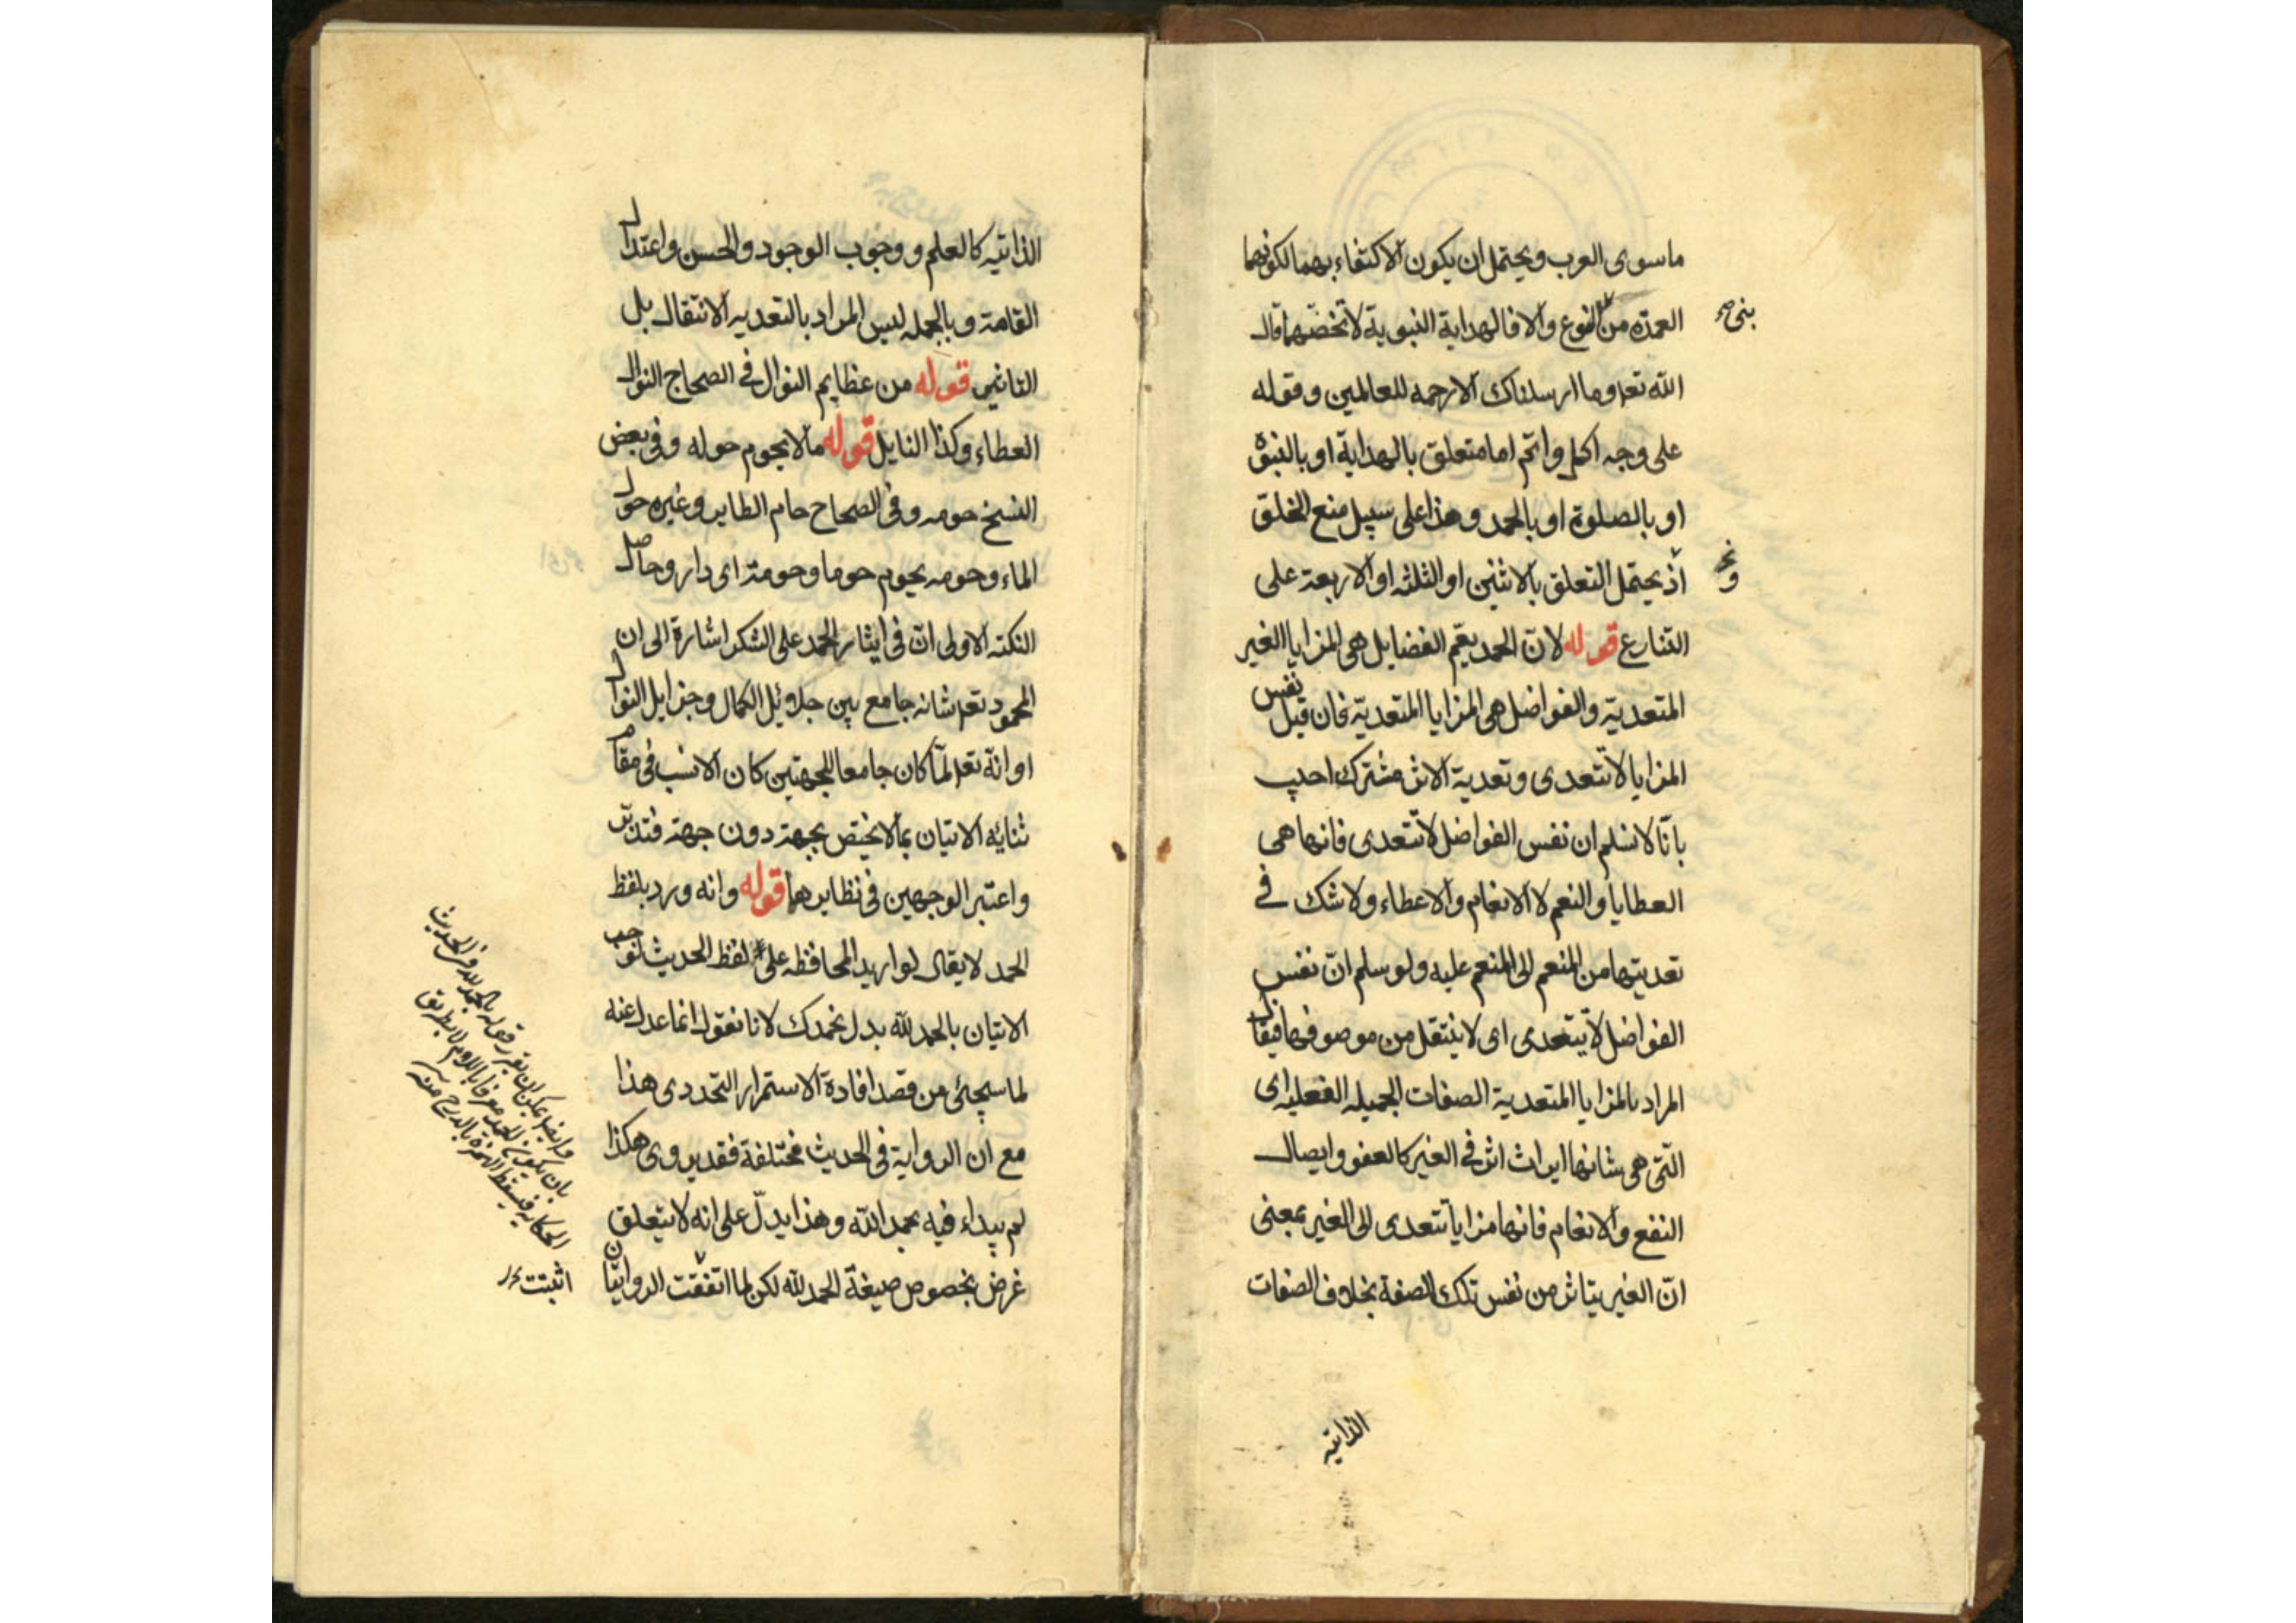 ماسوى العرب ويحتمل ان يكون الاكتفاء بهما لكونهما
العمدة من النوع والا فالهداية النبوية لا تخصهما قال
الله تعه وما ارسلناك الا رحمه للعالمين وقوله
على وجه اكمل واتم اما متعلق بالهداية او بالنبوة
او بالصلوة او بالحمد وهذا على سبيل منع الخلو
اذ يحتمل التعلق بالاثنين او الثلثه او الاربعة على
التنازع قوله لان الحمد يعم الفضايل هى المزايا الغير
المتعدية والفواضل هى المزايا المتعدية فان قيل نفس
المزايا لا تتعدى وتعدية الاثر مشترك اجيب
بانا لا نسلم ان نفس الفواضل لا تتعدى فانها هى
العطايا والنعم لا الانعام والاعطاء ولا شك فى
تعديتها من المنعم الى المنعم عليه ولو سلم ان نفس
الفواضل لا يتعدى اى لا ينتقل من موصوفها فيقال
المراد بالمزايا المتعدية الصفات الجميله الفعليه اى
التى هى شانها ايراث اثر فى الغير كالعفو وايصال
النفع والانعام فانها مزايا تتعدى الى الغير بمعنى
ان الغير يتاثر من نفس تلك الصفة بخلاف الصفات
الذاتيه
الذاتيه كالعلم ووجوب الوجود والحسن واعتدال
القامة وبالجمله ليس المراد بالتعديه الانتقال بل
التاثير قوله من عظايم النوال فى الصحاح النوال
العطاء وكذا النايل قوله ما لا يحوم حوله وفى بعض
النسخ حومه وفى الصحاح حام الطاير وغيره حول
الماء وحومه يحوم حوما وحومة اى دار وحاصل
النكته الاولى ان فى ايثار الحمد على الشكر اشارة الى ان
المحمود تعه شانه جامع بين جلايل الكمال وجزايل النوال
او انه تعه لما كان جامعا للجهتين كان الانسب فى مقام
ثنايه الاتيان بما لا يختص بجهة دون جهة فتدبر
واعتبر الوجهين فى نظايرهما قوله وانه ورد بلفظ
الحمد لا يقال لو اريد المحافظه على لفظ الحديث لوجب
الاتيان بالحمد لله بدل نحمدك لانا نقول انما عدل عنه
لما سيجئ من قصد افادة الاستمرار التجددى هذا
مع ان الرواية فى الحديث مختلفة فقد يروى هكذا
لم يبداء فيه بحمد الله وهذا يدل على انه لا يتعلق
غرض بخصوص صيغة الحمد لله لكن لما اتفقت الروايتان